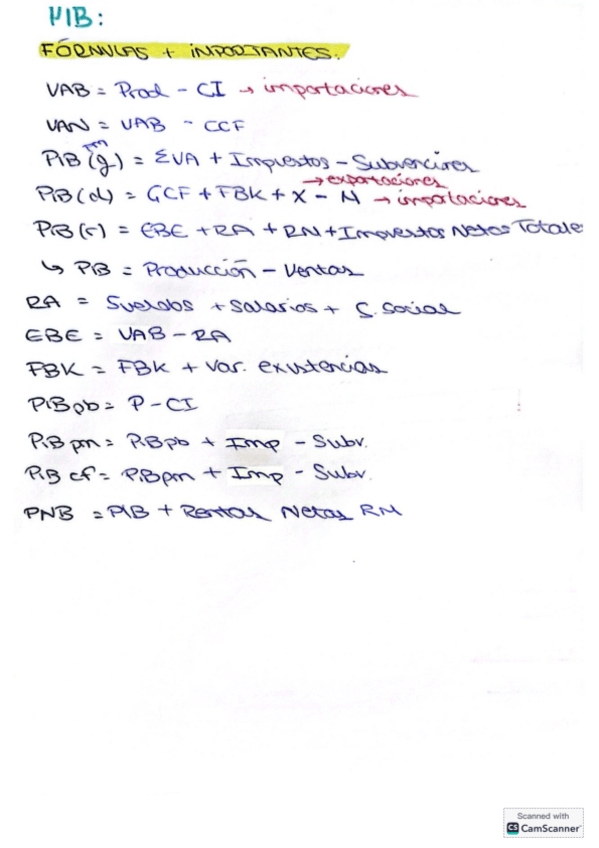 MIB:
FÓRMULAS + IMPORTANTES.
VAB = Prod - CI → importaciones
VAN = VAB - CCF
PIB(g) = ΣVA + Impuestos - Subvenciones
→ exportaciones
PIB(d) = GCF + FBK + X - M → importaciones
PIB(r) = EBE + RA + RN + Impuestos Netos Totales
↳ PIB = Producción - Ventas
RA = Sueldos + Salarios + C. Social
EBE = VAB - RA
FBK = FBK + Var. existencias
PIBpb = P - CI
PIBpm = PIBpb + Imp - Subv.
PIBcf = PIBpm + Imp - Subv.
PNB = PIB + Rentas Netas RM
Scanned with
CS CamScanner